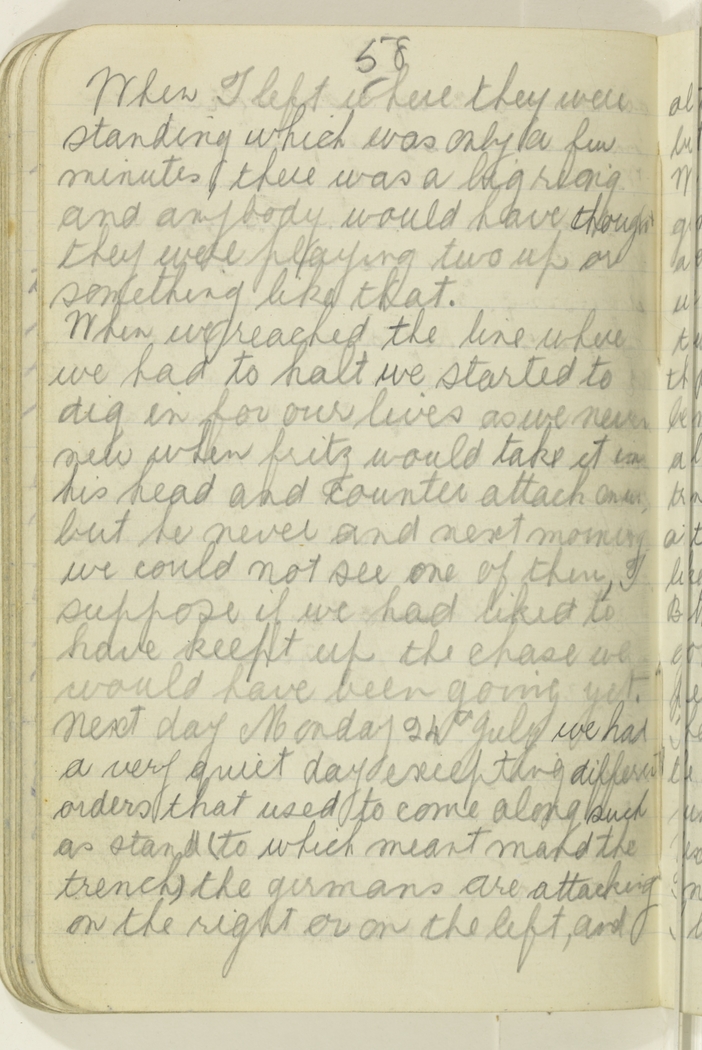 58
When I left where they were
standing which was only a few
minutes, there was a big ring
and anybody would have though
they were playing two up or
something like that.
When we reached the line where
we had to halt we started to
dig in for our lives as we never
new when fritz would take it in
his head and counter attack on us,
but he never and next morning
we could not see one of them, I
suppose if we had liked to
have keept up the chase we
would have been going yet.
Next day Monday 24th July we had
a very quiet day excepting different
orders that used to come along such
as stand (to which meant mand the
trench) the germans are attacking
on the right or on the left, and